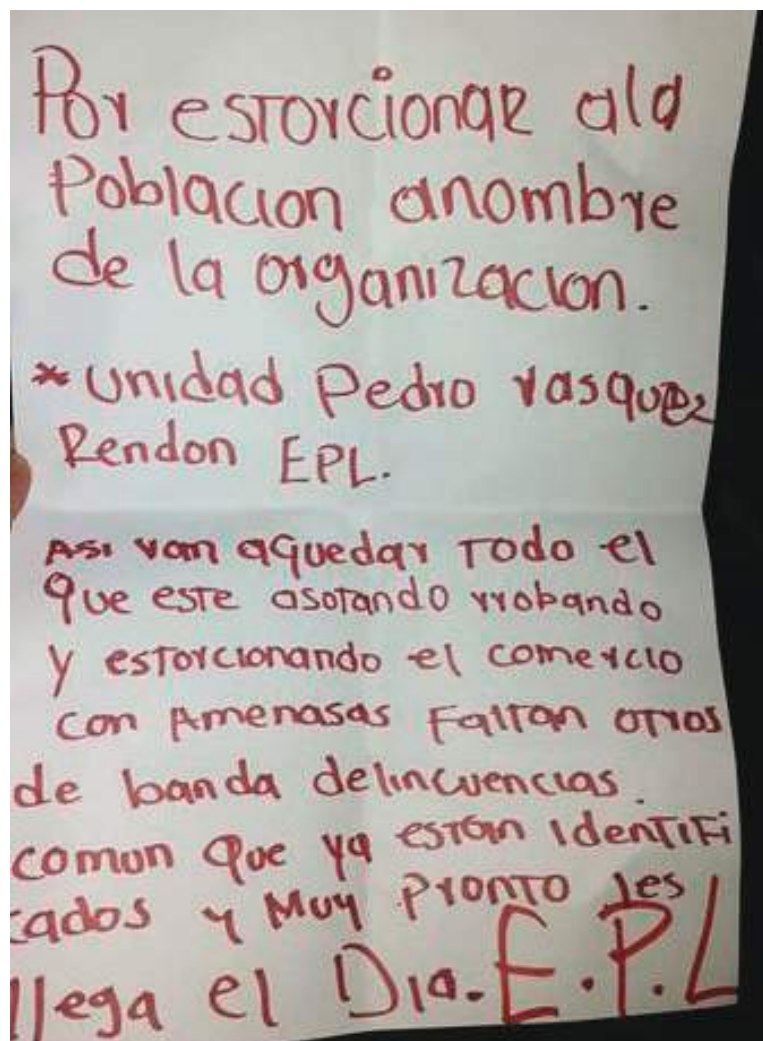 Por estorcionar ala
Poblacion anombre
de la organizacion.
* Unidad Pedro vasquez
Rendon EPL.
Asi van aquedar Todo el
que este asotando rrobando
y estorcionando el comercio
con Amenasas Faltan otros
de banda delincuencias.
comun que ya estan identifi
cados y Muy pronto les
llega el Dia. E.P.L